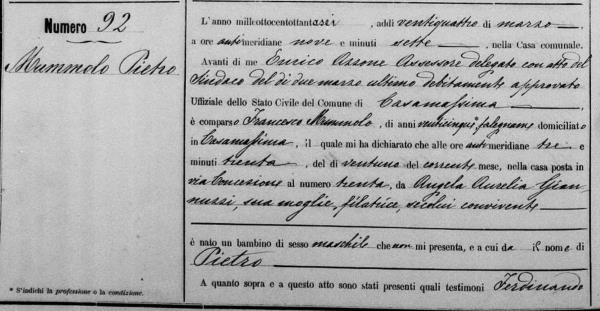 Numero 92
Mummolo Pietro
* S'indichi la professione o la condizione.
L'anno milleottocentottantasei, addì ventiquattro di marzo
a ore antimeridiane nove e minuti sette, nella Casa comunale.
Avanti di me Enrico Assessore delegato con atto del
Sindaco del dì due marzo ultimo debitamente approvato
Uffiziale dello Stato Civile del Comune di Casamassima
è comparso Francesco Mummolo, di anni venticinque falegname domiciliato
in Casamassima, il quale mi ha dichiarato che alle ore antimeridiane tre e
minuti trenta, del dì ventuno del corrente mese, nella casa posta in
via Concezione al numero trenta, da Angela Aurelia Gian
nuzzi, sua moglie, filatrice, secolui convivente
è nato un bambino di sesso maschile che non mi presenta, e a cui da il nome di
Pietro
A quanto sopra e a questo atto sono stati presenti quali testimoni Ferdinando